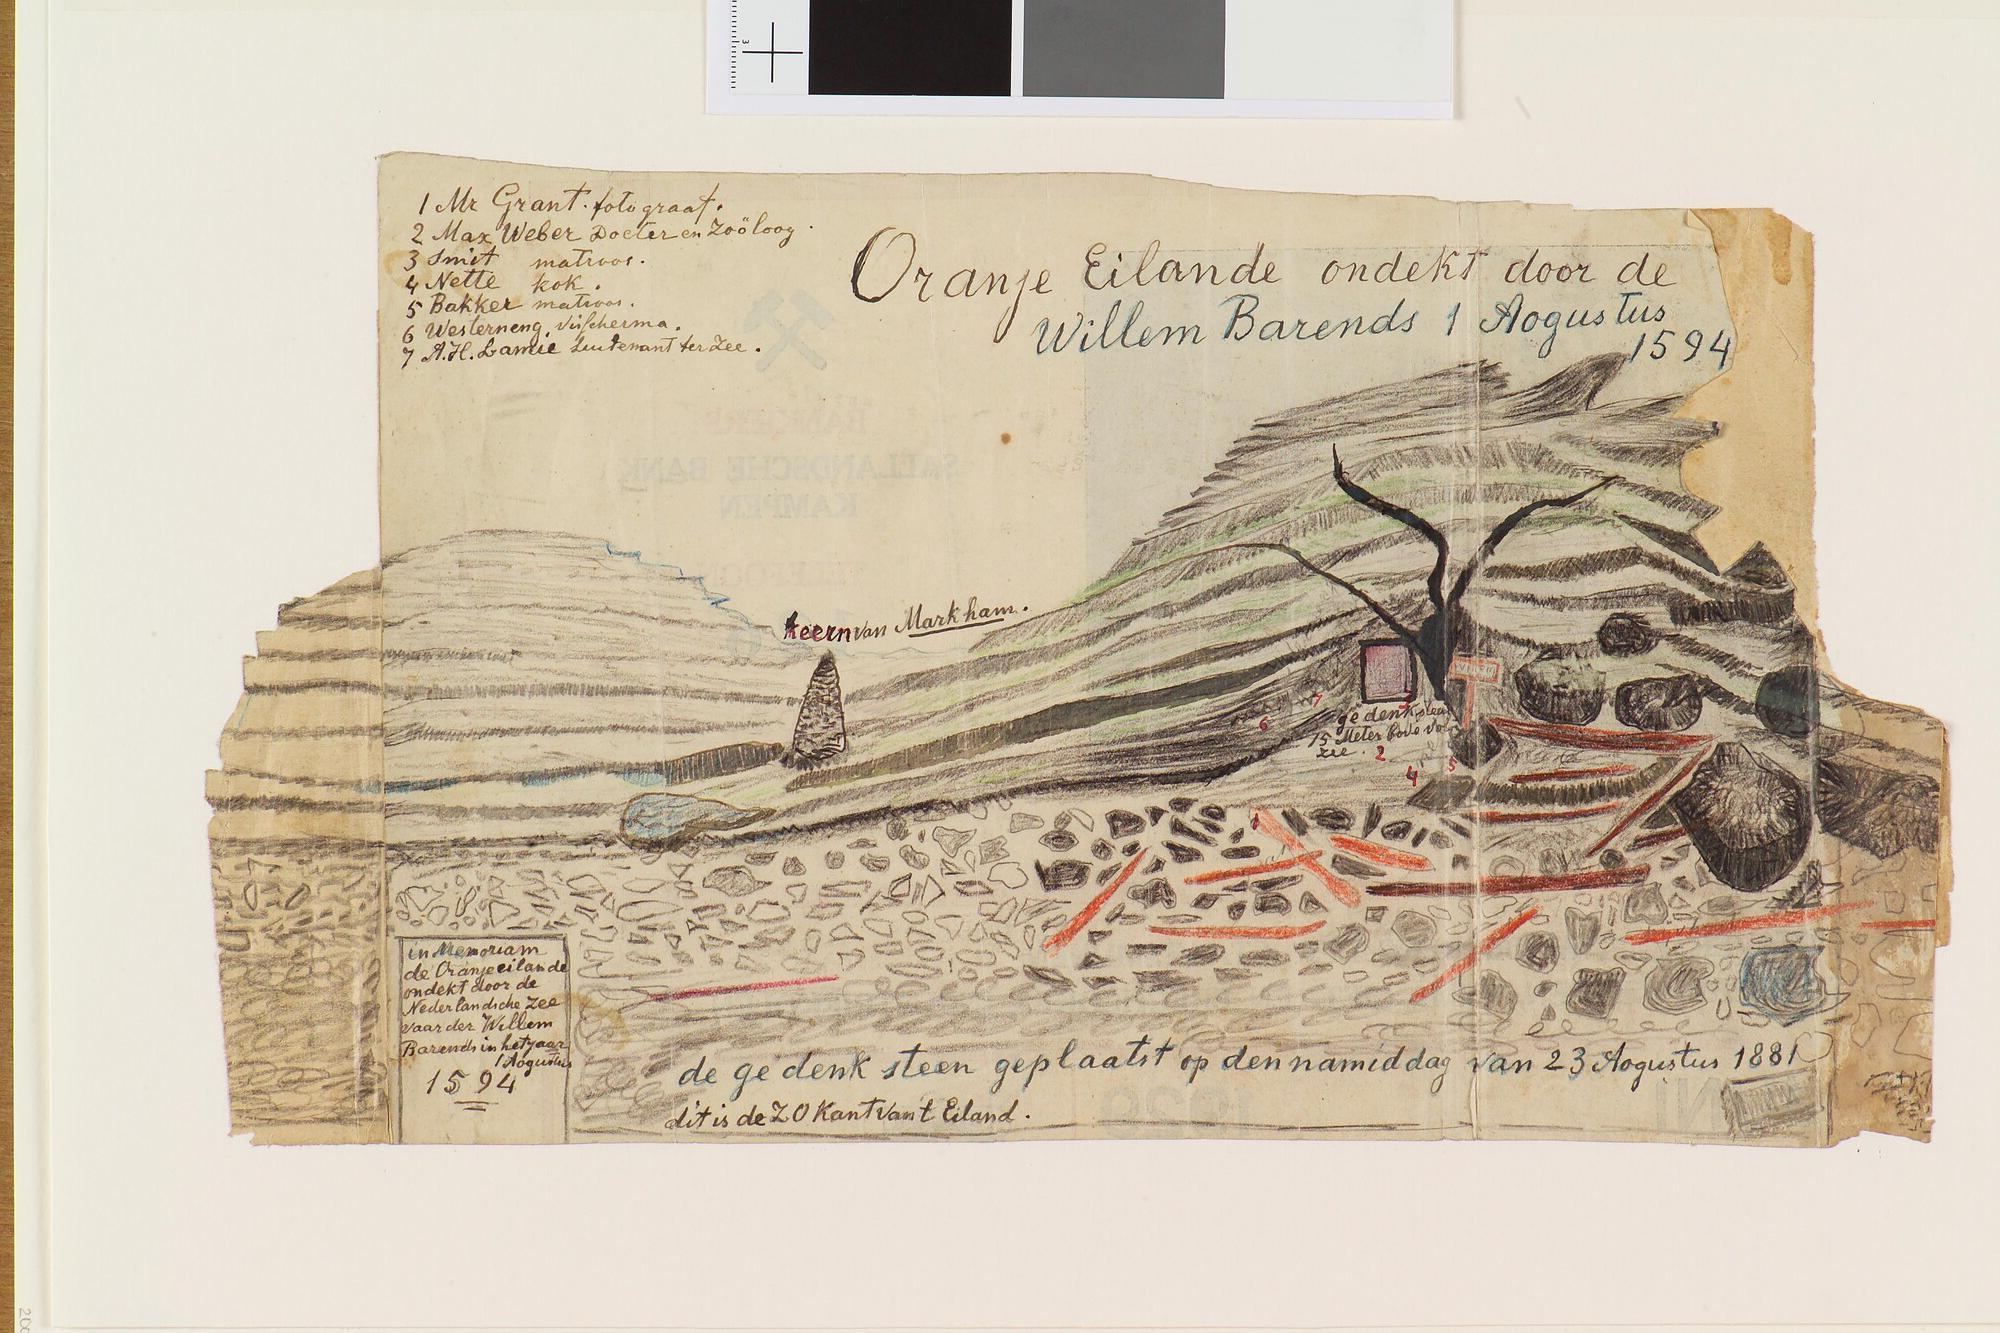 1 Mr Grant. fotograaf.
2 Max Weber Docter en Zoöloog.
3 Smit matroos.
4 Nette kok.
5 Bakker matroos.
6 Westerneng. visscherma.
7 A.H. Lamie Luutenant ter Zee.
Oranje Eilande ondekt door de
Willem Barends 1 Aogustus
1594
BANKIERS
SALLANDSCHE BANK
KAMPEN
keern van Markham.
7
6
gedenksteen
15 Meter bove
zee.
2
4
5
in Memoriam
de Oranjeeilande
ondekt door de
Nederlandsche Zee
vaarder Willem
Barends in het jaar
1 Aogustus
1594
de gedenk steen geplaatst op den namiddag van 23 Aogustus 1881
dit is de ZO Kant van t Eiland.